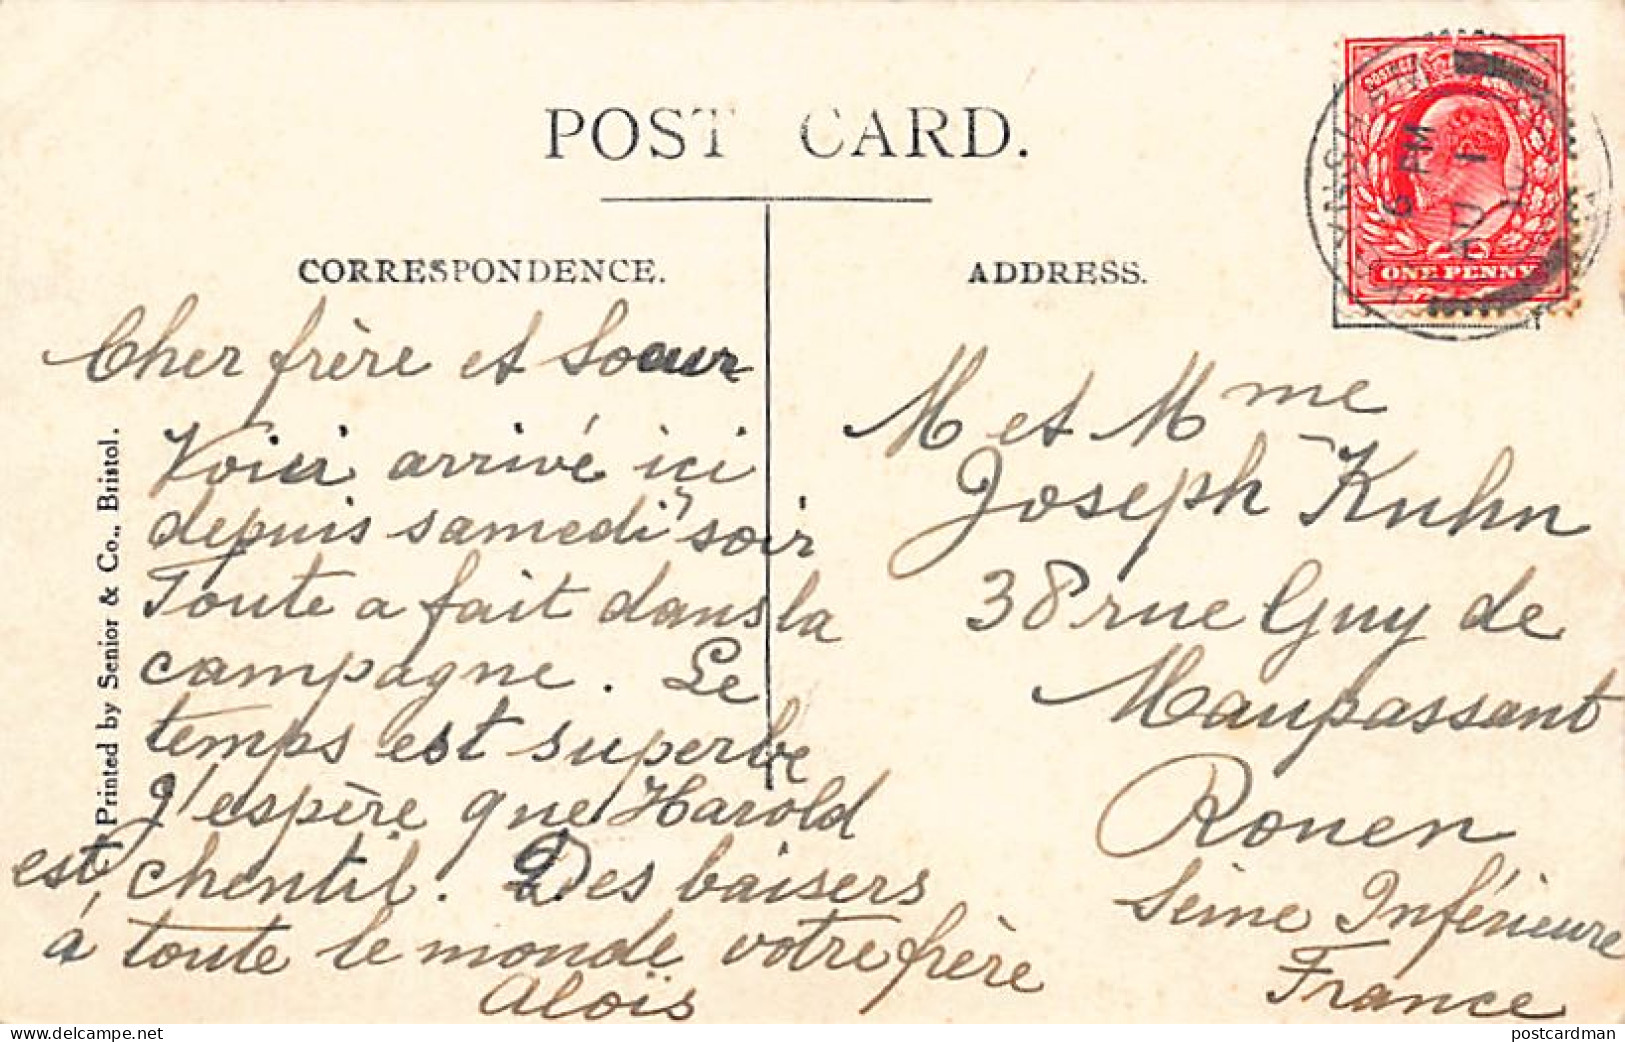 POST CARD.
CORRESPONDENCE.
Cher frère et Soeur
Voici arrivé ici
depuis samedi soir
Toute a fait dans la
campagne. Le
temps est superbe
J'espère que Harold
est chentil. Des baisers
à toute le monde votre frère
Aloïs
Printed by Senior & Co., Bristol.
ADDRESS.
M et Mme
Joseph Kuhn
38 rue Guy de
Maupassant
Rouen
Seine Inférieure
France
ONE PENNY
6 PM
AU 1
www.delcampe.net
postcardman